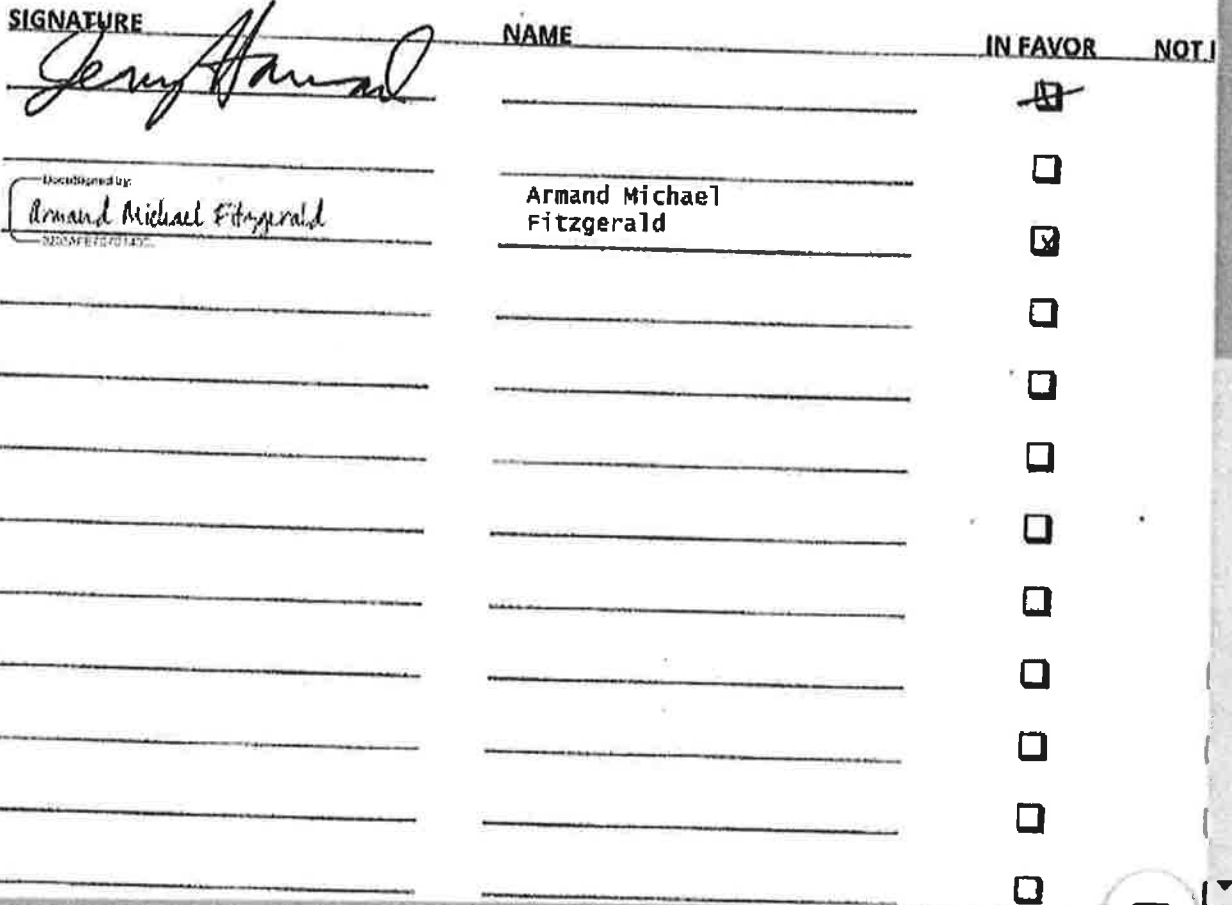 SIGNATURE NAME IN FAVOR NOT I
Jerry
DocuSigned by:
Armand Michael Fitzgerald
Armand Michael
Fitzgerald